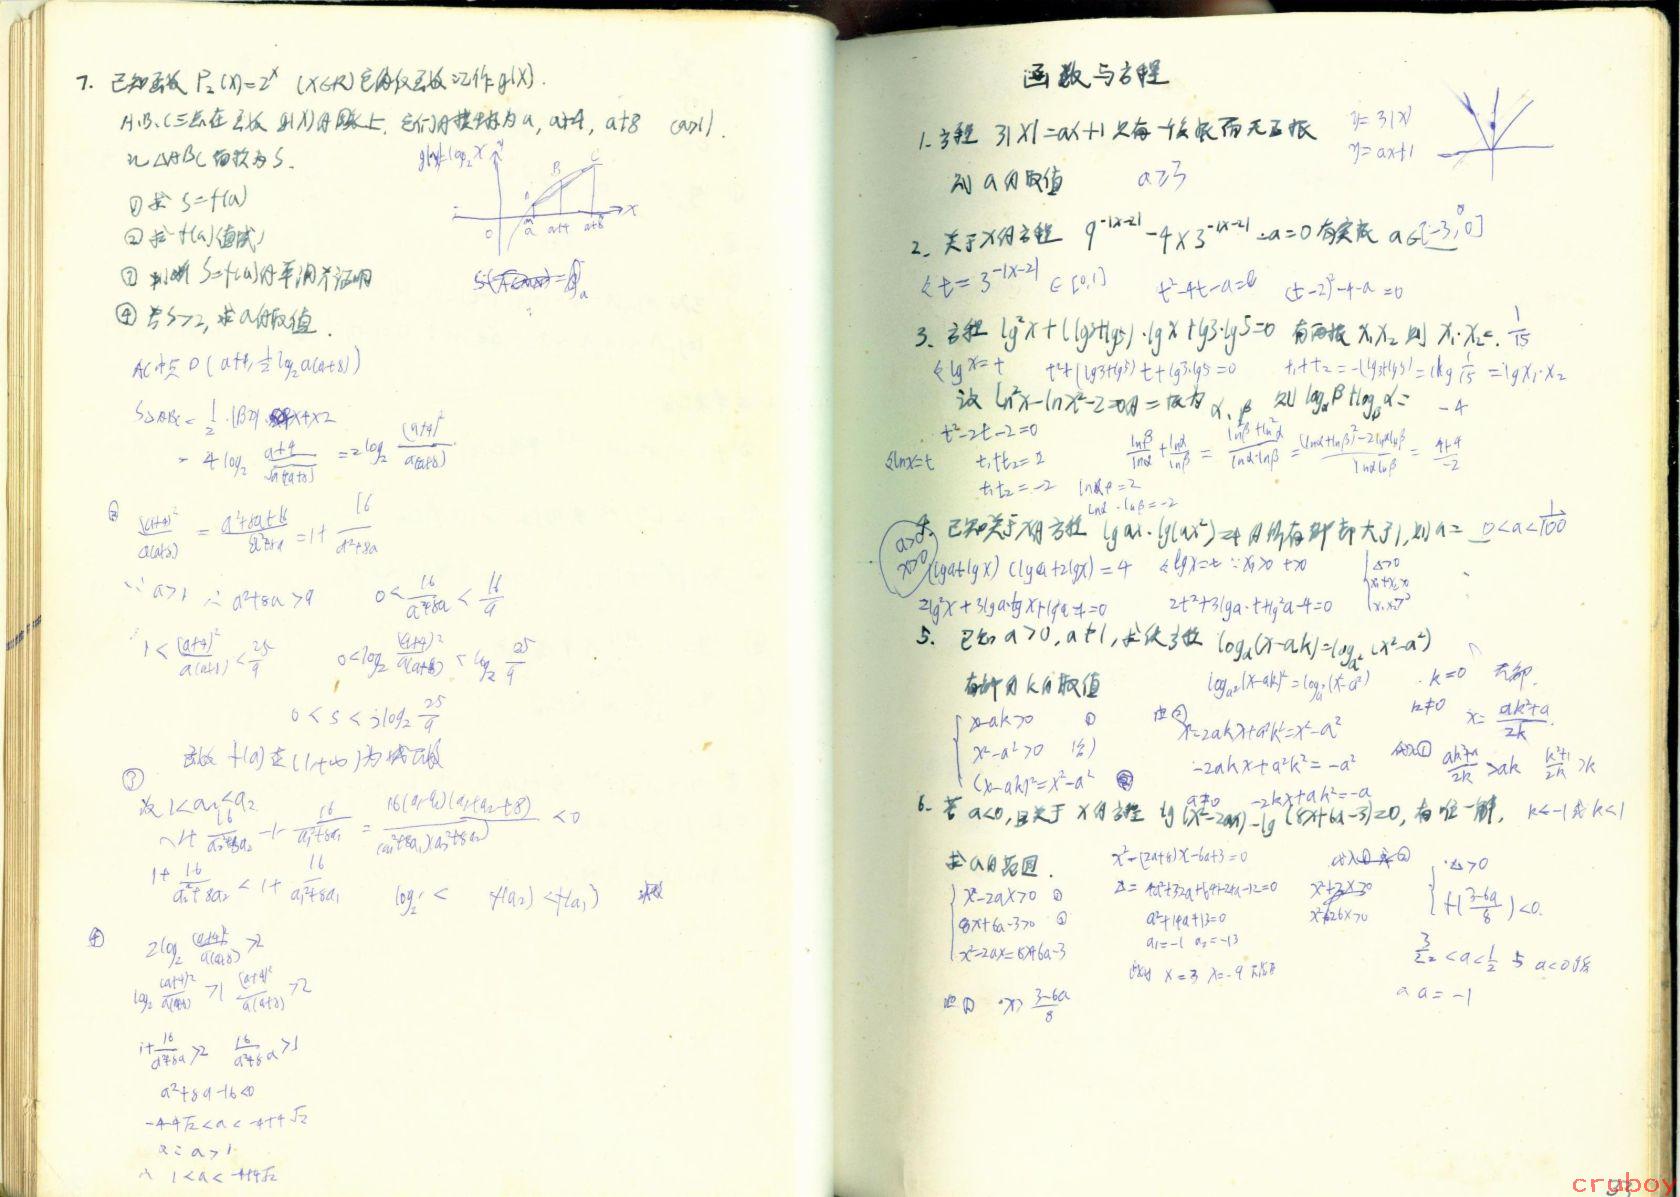 7. 已知函数 F₂(x)=2ˣ (x∈R) 它的反函数记作 g(x).
A、B、C三点在函数 g(x)的图象上, 它们的横坐标为 a, a+4, a+8 (a>1).
记△ABC 面积为 S.
g(x)=log₂X
y
A B C
O a a+4 a+8 x
① 求 S=f(a)
② 求 f(a)值域
③ 判断 S=f(a)的单调并证明
④ 若S>2, 求a的取值.
AC中点 D(a+4, ½log₂a(a+8))
S△ABC = 1/2·|BD|·4×2
= 4log₂ (a+4)/√(a(a+8)) = 2log₂ (a+4)²/(a(a+8))
② (a+4)²/(a(a+8)) = (a²+8a+16)/(a²+8a) = 1+ 16/(a²+8a)
∵ a>1 ∴ a²+8a>9 0< 16/(a²+8a) < 16/9
1< (a+4)²/(a(a+8)) < 25/9 0<log₂ (a+4)²/(a(a+8)) < log₂ 25/9
0<S<2log₂ 25/9
函数 f(a)在(1,+∞)为减函数
③
设 1<a₁<a₂
∴ 1+ 16/(a₂²+8a₂) -1- 16/(a₁²+8a₁) = 16(a₁-a₂)(a₁+a₂+8)/((a₁²+8a₁)(a₂²+8a₂)) <0
1+ 16/(a₂²+8a₂) < 1+ 16/(a₁²+8a₁) log₂ < f(a₂)<f(a₁)
④ 2log₂ (a+4)²/(a(a+8)) >2
log₂ (a+4)²/(a(a+8)) >1 (a+4)²/(a(a+8)) >2
1+ 16/(a²+8a) >2 16/(a²+8a) >1
a²+8a-16<0
-4-4√2<a<-4+4√2
∵ a>1
∴ 1<a<-4+4√2
函数与方程
1. 方程 3|x|=ax+1 只有一负根而无正根
则 a的取值 a≥3
y=3|x|
y=ax+1
2. 关于x的方程 9^(-|x-2|) -4×3^(-|x-2|) -a=0有实根 a∈[-3,0]
令t=3^(-|x-2|) ∈[0,1] t²-4t-a=0 (t-2)²-4-a=0
3. 方程 lg²x+(lg3+lg5)·lgx+lg3·lg5=0 有两根 x₁x₂则 x₁·x₂=. 1/15
令lgx=t t²+(lg3+lg5)t+lg3·lg5=0 t₁+t₂=-(lg3+lg5)=lg 1/15 =lgx₁·x₂
设 ln²x-lnx²-2=0的二根为 α、β 则 log_αβ+log_βα= -4
t²-2t-2=0
令lnx=t t₁+t₂=2
t₁t₂=-2 lnαβ=2
lnα·lnβ=-2
lnβ/lnα + lnα/lnβ = (ln²β+ln²α)/(lnα·lnβ) = ((lnα+lnβ)²-2lnαlnβ)/(lnαlnβ) = (4+4)/-2
4. 已知关于x的方程 lgax·lg(ax²)=4 的所有解都大于1, 则a= 0<a<1/100
a>0
x>0
(lga+lgx)(lga+2lgx)=4 令lgx=t ∵x>0 t>0
Δ>0
x₁+x₂>0
x₁x₂>0
2lg²x+3lga·lgx+lg²a-4=0 2t²+3lga·t+lg²a-4=0
5. 已知a>0, a≠1, 求使方程 log_a(x-ak)=log_a²(x²-a²)
有解的k的取值
log_a²(x-ak)²=log_a²(x²-a²) k=0 无解
x-ak>0 ①
x²-a²>0
(x-ak)²=x²-a²
由② x²-2akx+a²k²=x²-a²
-2akx+a²k²=-a²
a≠0 -2kx+ak²=-a
k≠0 x= (ak²+a)/2k
代入① (ak²+a)/2k >ak (k²+1)/2k >k
k<-1或k<1
6. 若 a<0, 且关于x的方程 lg(x²-2ax)-lg(8x+6a-3)=0, 有唯一解,
求a的范围.
x²-2ax>0 ①
8x+6a-3>0 ②
x²-2ax=8x+6a-3
x²-(2a+8)x-6a+3=0
Δ=4a²+32a+64+24a-12=0
a²+14a+13=0
a₁=-1 a₂=-13
x=3 x=-9
Δ>0
f((3-6a)/8)<0.
3/22 <a<1/2 与 a<0矛盾
∴ a=-1
x> (3-6a)/8
cruboy